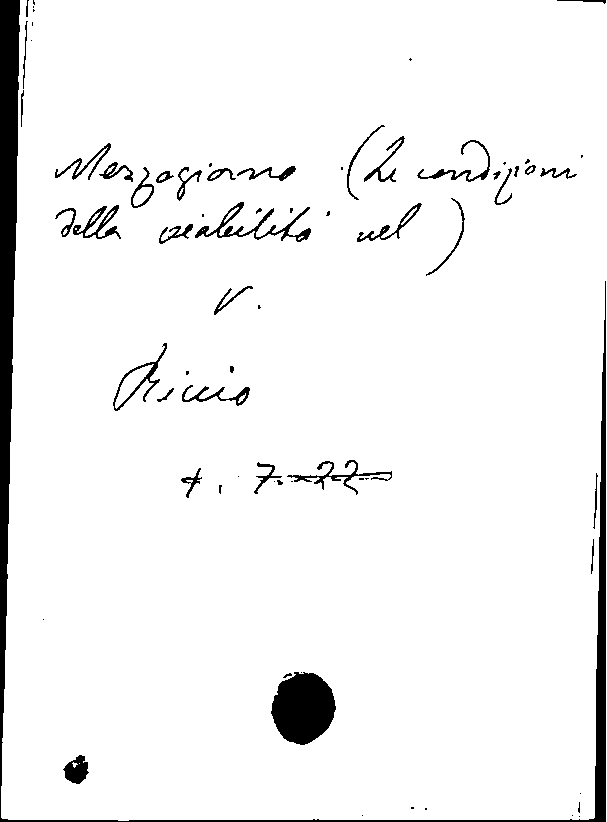 Mezzogiorno (Le condizioni
della viabilità nel)
V.
Riccio
7.22